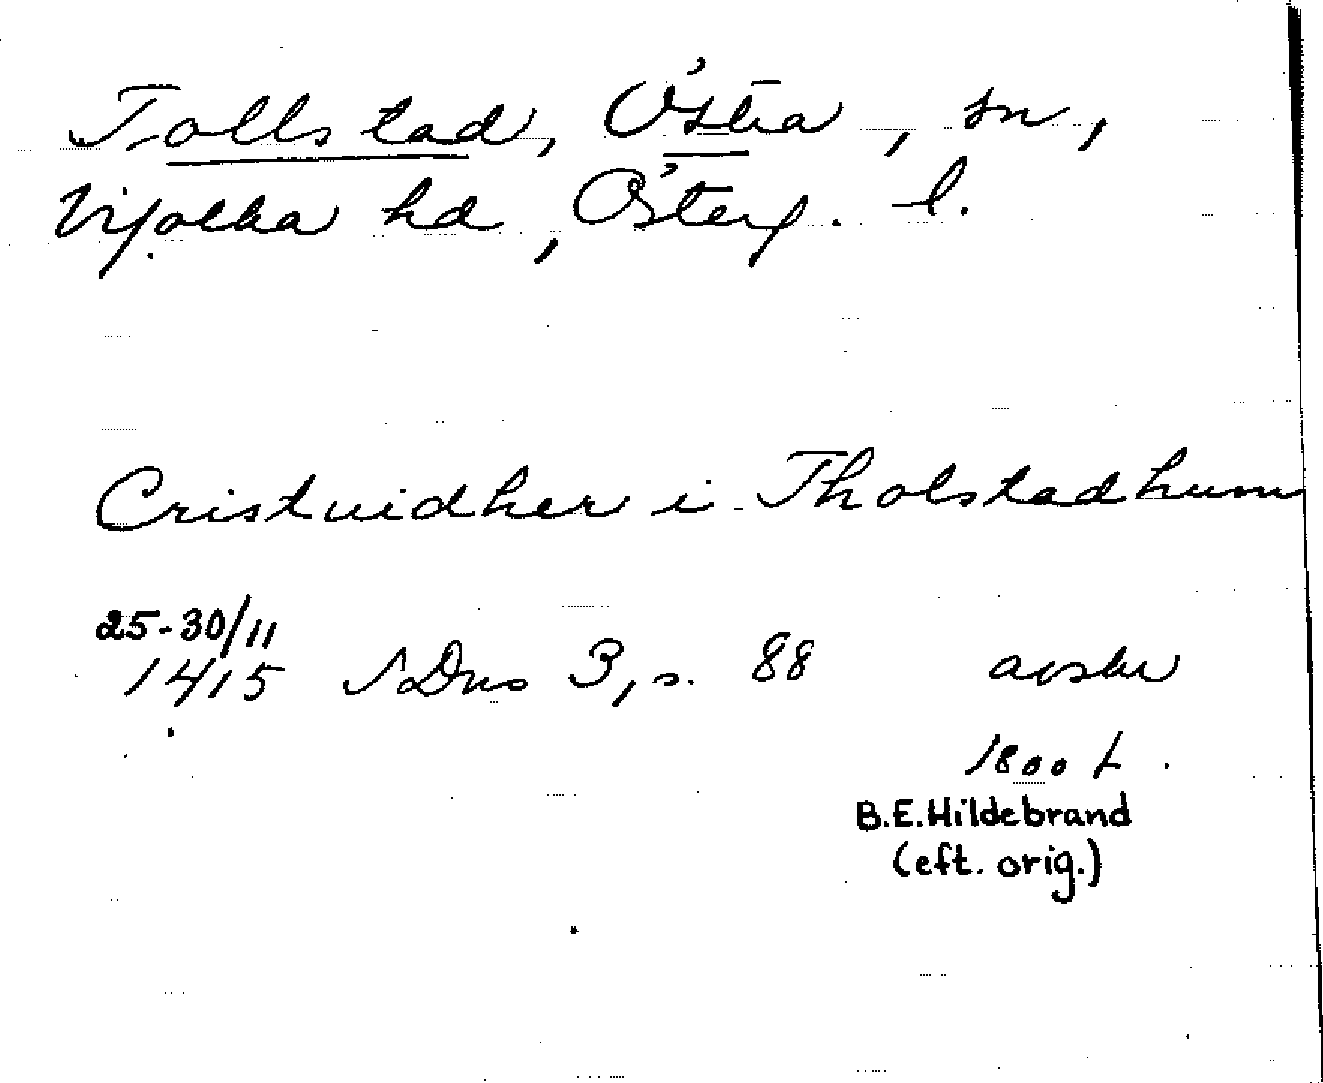 Tollstad, Östra, sn,
Vifolka hd, Österg. l.
Cristuidher i Tholstadhum
25-30/11
1415 SDns 3, s. 88 avskr
1800 t.
B.E. Hildebrand
(eft. orig.)